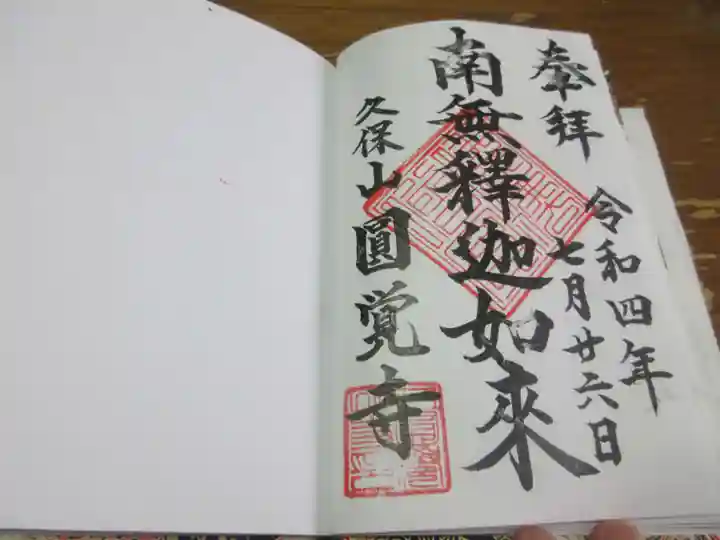 奉拝
令和四年
七月廿六日
南無釋迦如來
久保山圓覚寺